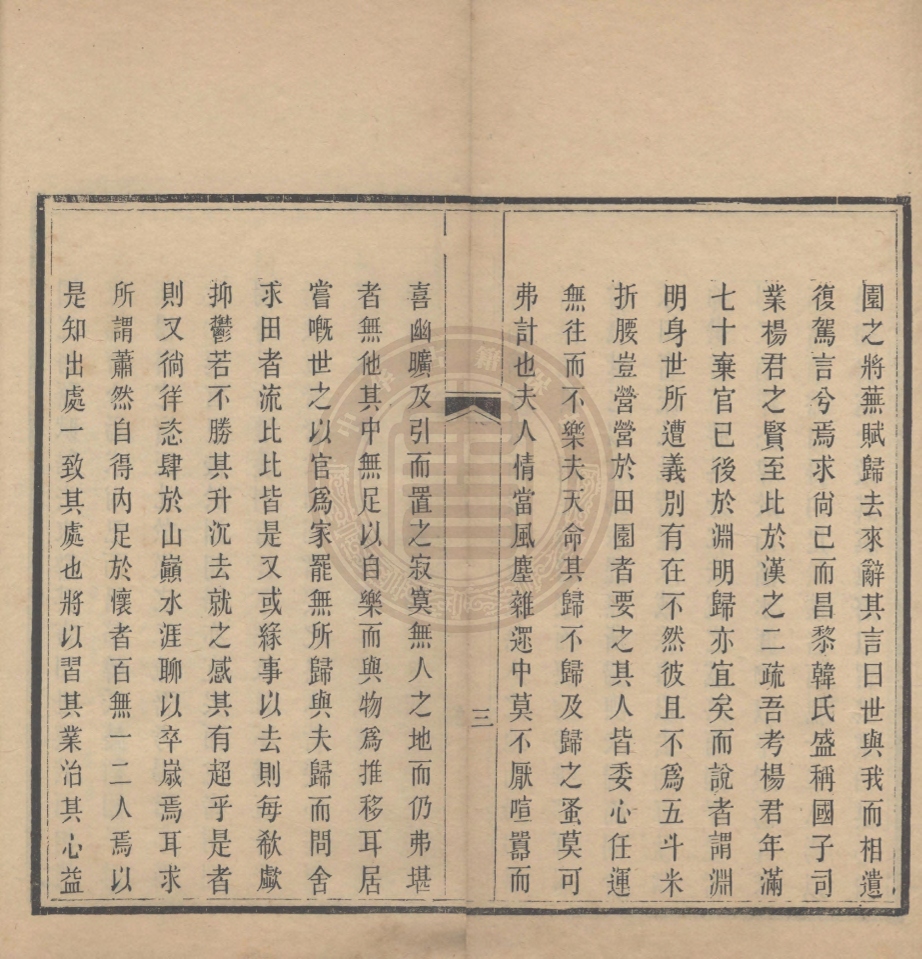 園之將蕪賦歸去來辭其言曰世與我而相遺
復駕言兮焉求尙已而昌黎韓氏盛稱國子司
業楊君之賢至比於漢之二疏吾考楊君年滿
七十棄官已後於淵明歸亦宜矣而說者謂淵
明身世所遭義別有在不然彼且不爲五斗米
折腰豈營營於田園者要之其人皆委心任運
無往而不樂夫天命其歸不歸及歸之蚤莫可
弗計也夫人情當風塵雜遝中莫不厭喧囂而
三
喜幽曠及引而置之寂寞無人之地而仍弗堪
者無他其中無足以自樂而與物爲推移耳居
嘗嘅世之以官爲家罷無所歸與夫歸而問舍
求田者流比比皆是又或緣事以去則每欷歔
抑鬱若不勝其升沉去就之感其有超乎是者
則又徜徉恣肆於山巔水涯聊以卒歲焉耳求
所謂蕭然自得內足於懷者百無一二人焉以
是知出處一致其處也將以習其業治其心益